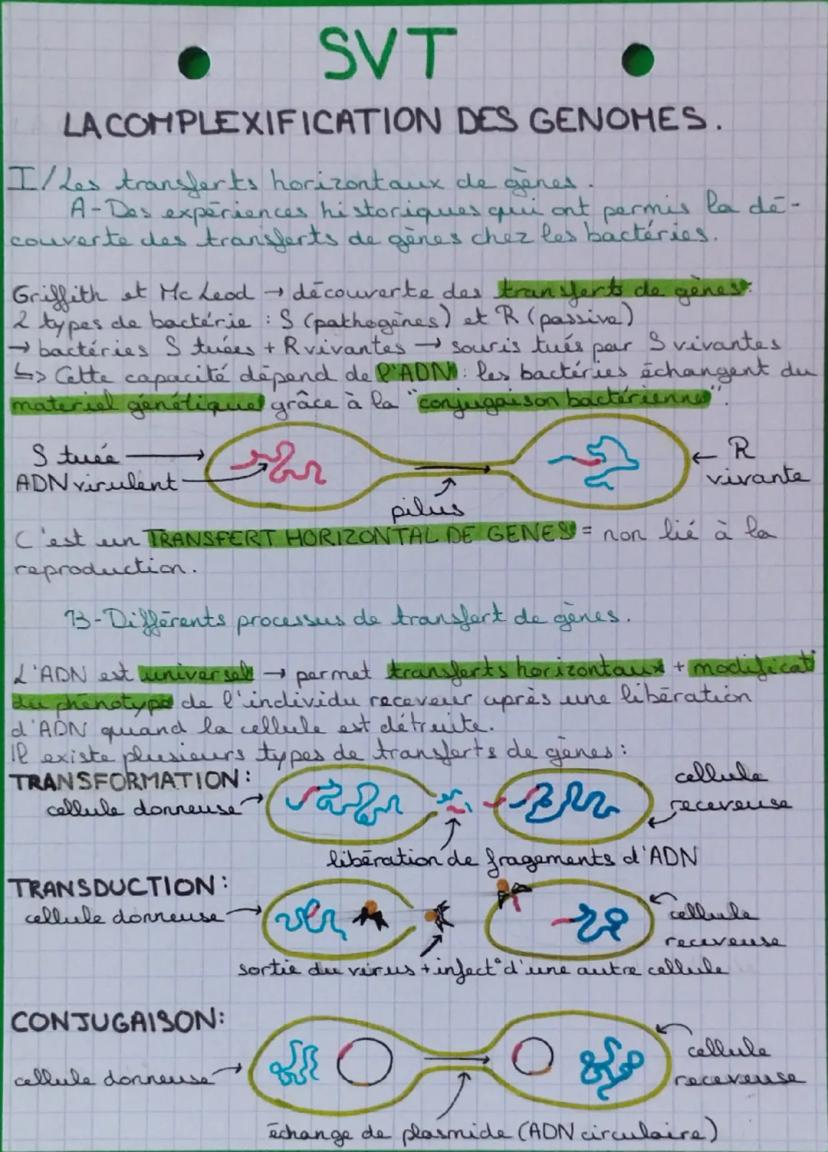 SVT
LA COMPLEXIFICATION DES GENOMES.
I/Les transferts horizontaux de gènes.
A-Des expériences historiques qui ont permis la dé-
couverte des transferts de gènes chez les bactéries.
Griffith et Mc Leod → découverte des transferts de gènes:
2 types de bactérie : S (pathogènes) et R (passive)
→ bactéries S tuées + R vivantes → souris tués par S vivantes
↳ Cette capacité dépend de l'ADN : les bactéries échangent du
materiel génétique grâce à la "conjugaison bactérienne".
S tuée
ADN virulent
pilus
R
vivante
C'est un TRANSFERT HORIZONTAL DE GENES = non lié à la
reproduction.
B-Différents processus de transfert de gènes.
L'ADN est universel → permet transferts horizontaux + modificat°
du phénotype de l'individu receveur après une libération
d'ADN quand la cellule est détruite.
Il existe plusieurs types de transferts de gènes :
TRANSFORMATION:
cellule donneuse
cellule
receveuse
libération de fragements d'ADN
TRANSDUCTION:
cellule donneuse
cellule
receveuse
sortie du virus + infect° d'une autre cellule
CONJUGAISON:
cellule donneuse
cellule
receveuse
échange de plasmide (ADN circulaire)